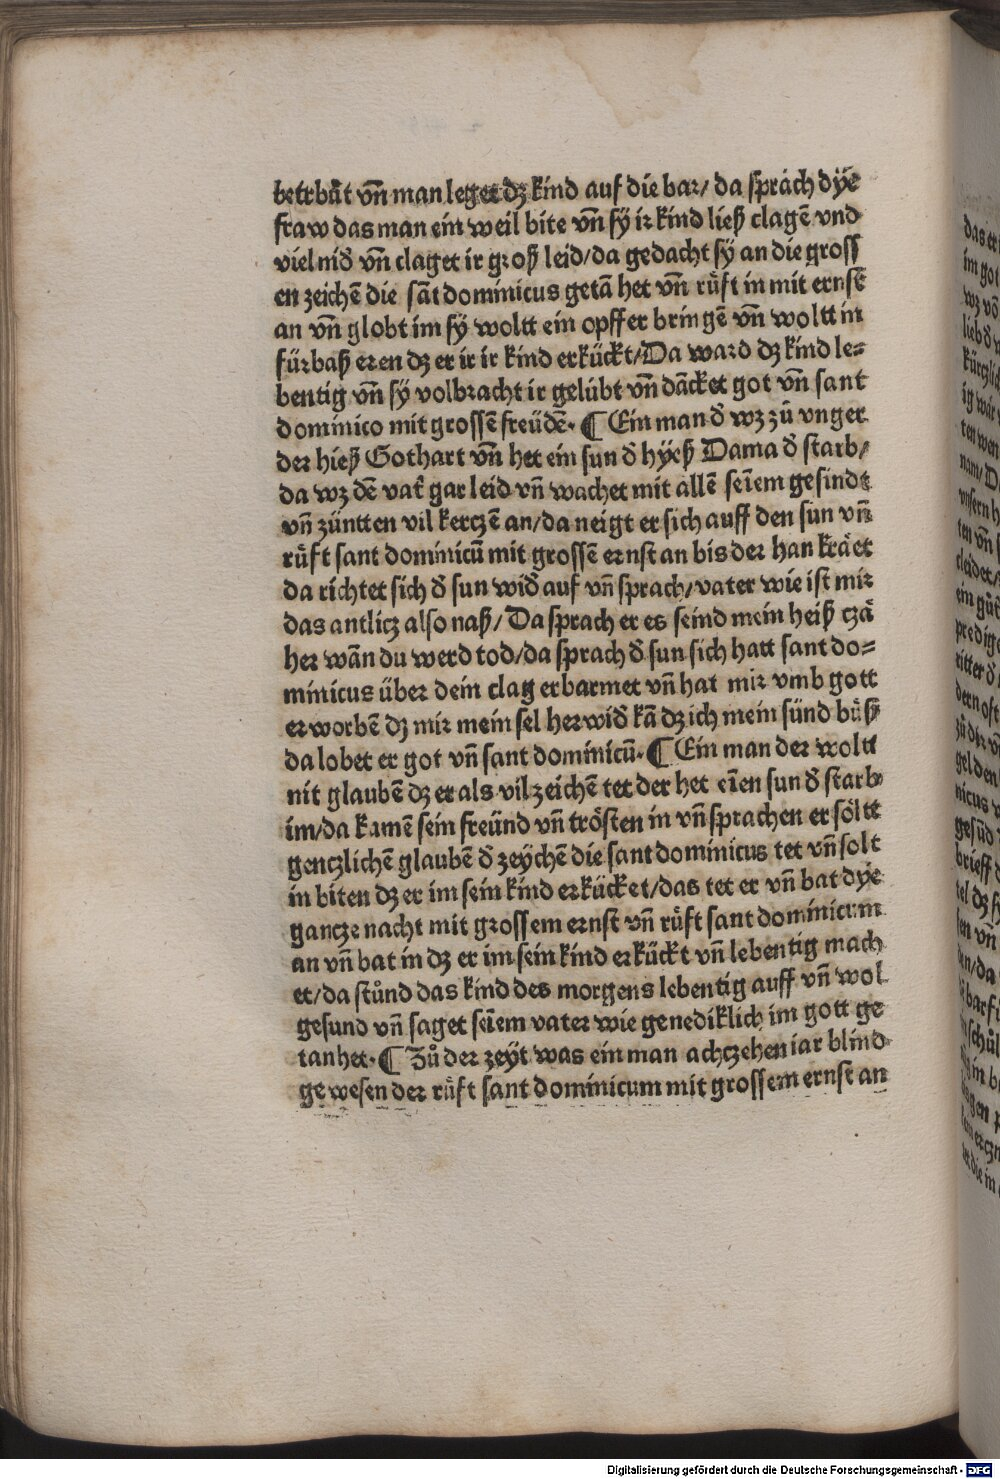 betrbůt vn̄ man leget dz kind auf die bar/ da sprach dÿe
fraw das man ein weil bite vn̄ sÿ ir kind ließ clagē vnd
viel nið vn̄ claget ir groß leid/da gedacht sÿ an die gross
en zeichē die sāt dominicus getā het vn̄ růft in mit ernst
an vn̄ globt im sÿ woltt ein opffer bringē vn̄ woltt in
fürbaß eren dz er ir ir kind erkückt/Da ward dz kind le=
bentig vn̄ sÿ volbracht ir gelübt vn̄ dācket got vn̄ sant
dominico mit grossē freüdē. ¶ Ein man ð wz zů vnger
der hieß Gothart vn̄ het ein sun ð hÿeß Dama ð starb/
da wz dē vat̄ gar leid vn̄ wachet mit allē seīem gesindt
vn̄ züntten vil kerczē an/da neigt er sich auff den sun vn̄
růft sant dominicū mit grossē ernst an bis der han kräet
da richtet sich ð sun wið auf vn̄ sprach/vater wie ist mir
das antlicz also naß/Da sprach er es seind mein heiß czä
her wān du werd tod/da sprach ð sun sich hatt sant do=
minicus über dein clag erbarmet vn̄ hat mir vmb gott
erworbē dz mir mein sel herwið kā dz ich mein sünd büß
da lobet er got vn̄ sant dominicū. ¶ Ein man der woltt
nit glaubē dz er als vil zeichē tet der het eīen sun ð starb
im/da kamē sein freünd vn̄ trösten in vn̄ sprachen er söltt
genczlichē glaubē ð zeÿchē die sant dominicus tet vn̄ solt
in biten dz er im sein kind erkücket/das tet er vn̄ bat dÿe
gancze nacht mit grossem ernst vn̄ růft sant dominicum
an vn̄ bat in dz er im sein kind erkückt vn̄ lebentig mach
et/da stůnd das kind des morgens lebentig auff vn̄ wol
gesund vn̄ saget seīem vater wie genediklich im gott ge
tan het. ¶ Zů der zeyt was ein man achczehen iar blind
gewesen der růft sant dominicum mit grossem ernst an
Digitalisierung gefördert durch die Deutsche Forschungsgemeinschaft - DFG